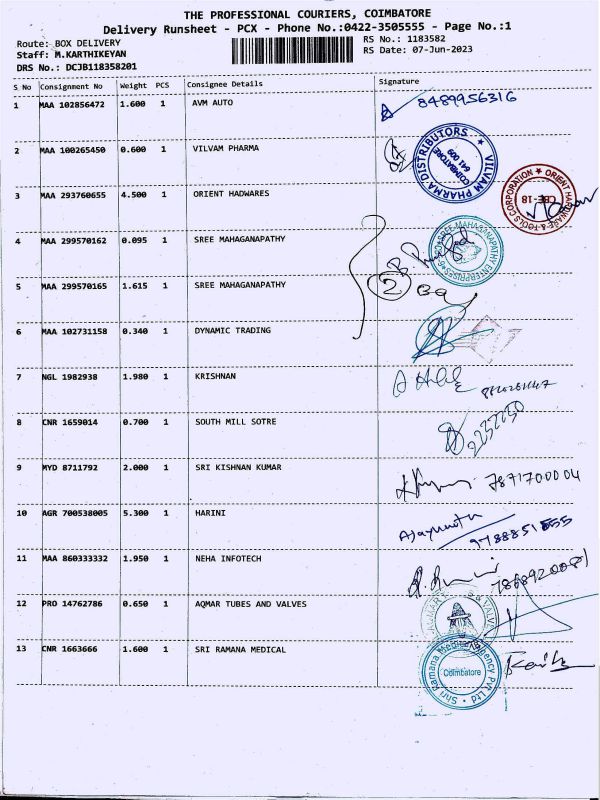 THE PROFESSIONAL COURIERS, COIMBATORE
Delivery Runsheet - PCX - Phone No.:0422-3505555 - Page No.:1
Route: BOX DELIVERY RS No.: 1183582
Staff: M.KARTHIKEYAN RS Date: 07-Jun-2023
DRS No.: DCJB118358201
S No Consignment No Weight PCS Consignee Details Signature
1 MAA 102856472 1.600 1 AVM AUTO 8489956316
2 MAA 100265450 0.600 1 VILVAM PHARMA
VILVAM PHARMA DISTRIBUTORS
COIMBATORE
641 009
3 MAA 293760655 4.500 1 ORIENT HADWARES
ORIENT HARDWARE & TOOLS CORPORATION
CBE-18
4 MAA 299570162 0.095 1 SREE MAHAGANAPATHY
SREE MAHAGANAPATHY ENTERPRISES
5 MAA 299570165 1.615 1 SREE MAHAGANAPATHY
2
6 MAA 102731158 0.340 1 DYNAMIC TRADING
7 NGL 1982938 1.980 1 KRISHNAN
8 CNR 1659014 0.700 1 SOUTH MILL SOTRE
9 MYD 8711792 2.000 1 SRI KISHNAN KUMAR 7871700004
10 AGR 700538005 5.300 1 HARINI
9788851555
11 MAA 860333332 1.950 1 NEHA INFOTECH 7868920081
12 PRO 14762786 0.650 1 AQMAR TUBES AND VALVES
13 CNR 1663666 1.600 1 SRI RAMANA MEDICAL
Shri Ramana Medical Agency Pvt Ltd
Coimbatore